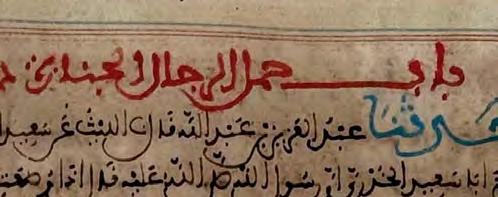 باب حمل الرجال الجنازة
حدثنا عبد العزيز بن عبد الله قال الليث عن سعيد
ابا سعيد الخدري ان رسول الله صلى الله عليه قال اذا وضعت